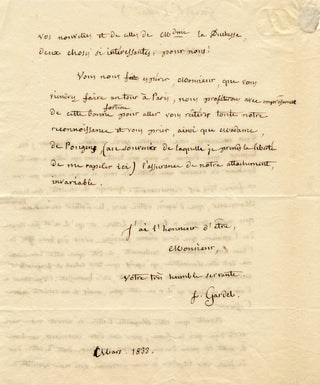 vos nouvelles et de celles de Mdme la Duchesse
deux choses si intéressantes, pour nous!
Vous nous fait espérer Monsieur, que vous
viendrez faire un tour à Paris, nous profiterons avec empressement
de cette bonne fortune pour aller vous réitérer toute notre
reconnoissance et vous prier, ainsi que Madame,
de Pougens (au souvenir de laquelle je prend la liberté
de me rapeller ici) l'assurance de notre attachement,
invariable.
J'ai l'honneur d'être,
Monsieur,
Votre très humble servante
f. Gardel.
Mars. 1833.